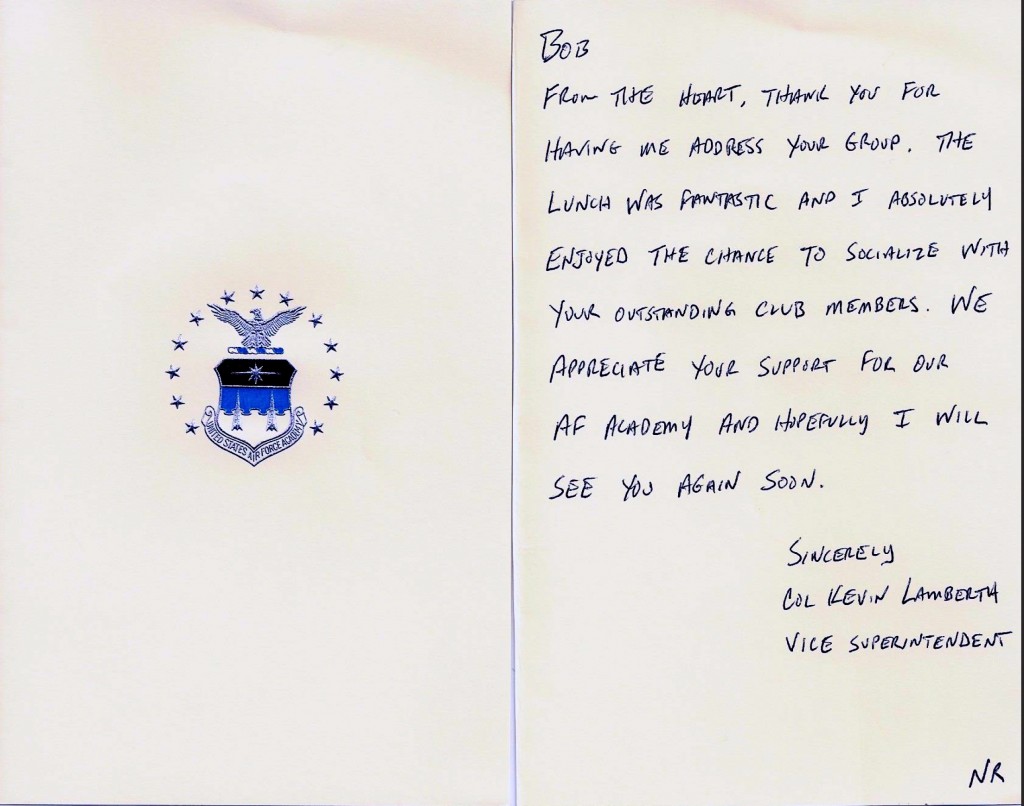 UNITED STATES AIR FORCE ACADEMY
BOB
FROM THE HEART, THANK YOU FOR
HAVING ME ADDRESS YOUR GROUP. THE
LUNCH WAS FANTASTIC AND I ABSOLUTELY
ENJOYED THE CHANCE TO SOCIALIZE WITH
YOUR OUTSTANDING CLUB MEMBERS. WE
APPRECIATE YOUR SUPPORT FOR OUR
AF ACADEMY AND HOPEFULLY I WILL
SEE YOU AGAIN SOON.
SINCERELY
COL KEVIN LAMBERTH
VICE SUPERINTENDENT
NR